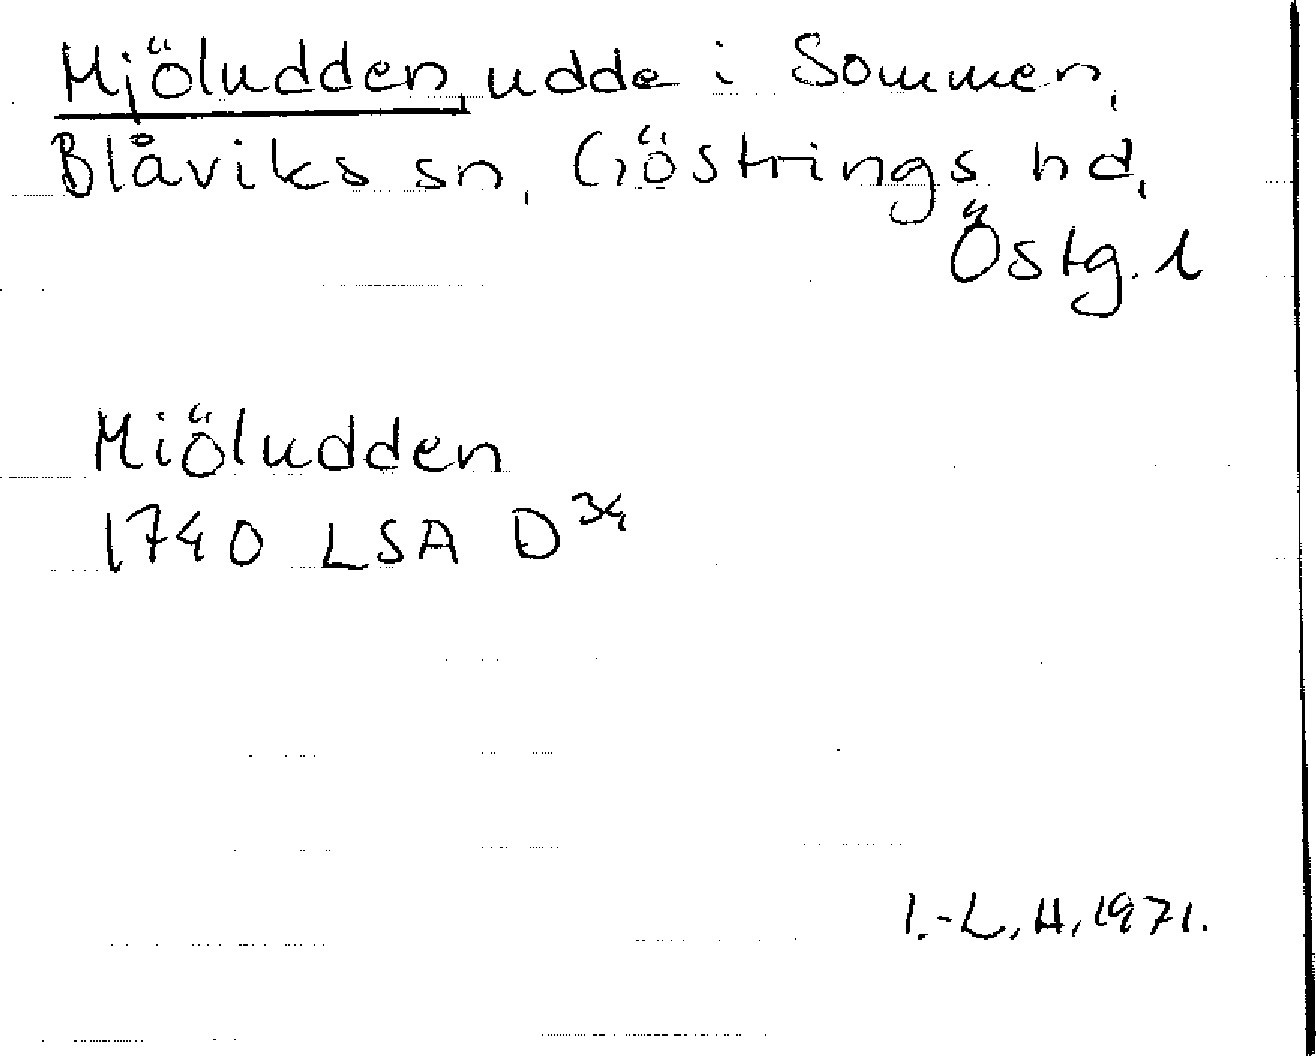 Mjöludden, udde i Sommen,
Blåviks sn, Göstrings hd,
Östg. l
Miöludden
1740 LSA D³⁴
I.-L. H, 1971.